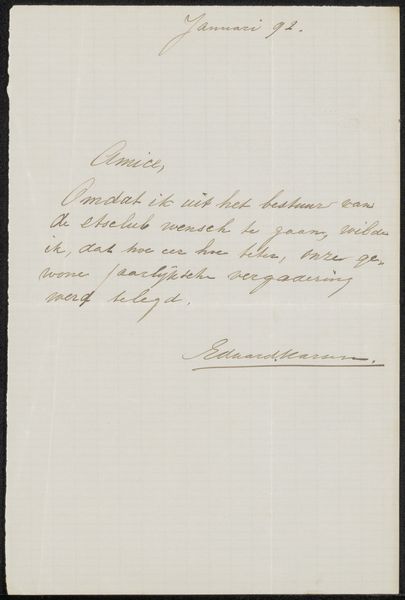 Januari 92.
Amice,
Omdat ik uit het bestuur van
de etsclub wensch te gaan, wilde
ik, dat hoe eer hoe beter, onze ge-
wone jaarlijksche vergadering
werd belegd.
Eduard Karsen.